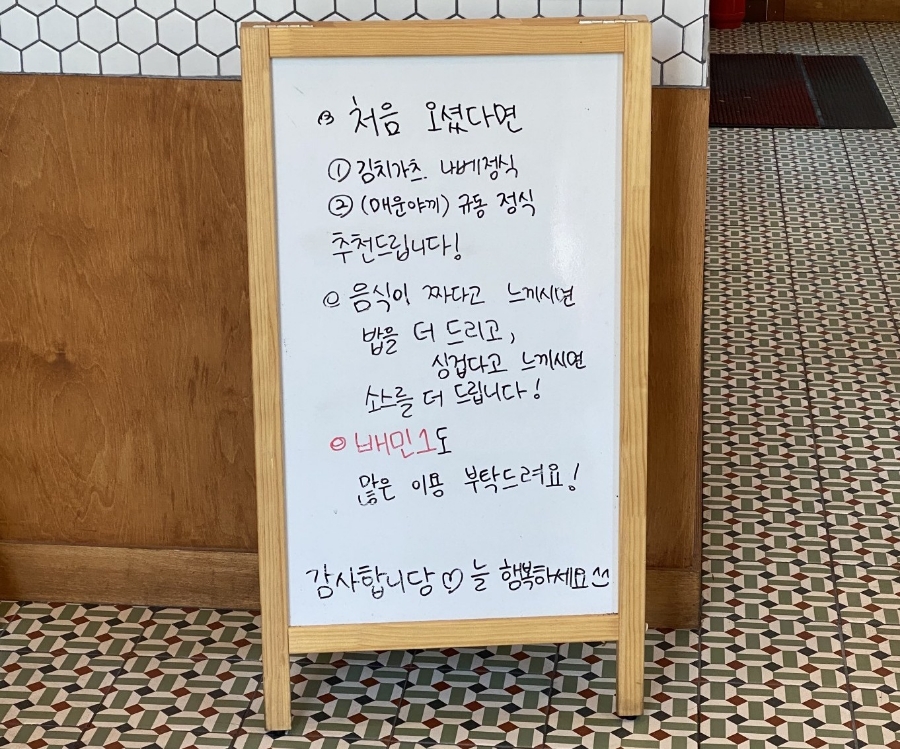 처음 오셨다면
① 김치가츠. 나베정식
② (매운야끼) 규동 정식
추천드립니다!
음식이 짜다고 느끼시면
밥을 더 드리고,
싱겁다고 느끼시면
소스를 더 드립니다!
배민1도
많은 이용 부탁드려요!
감사합니당♡ 늘 행복하세요^^